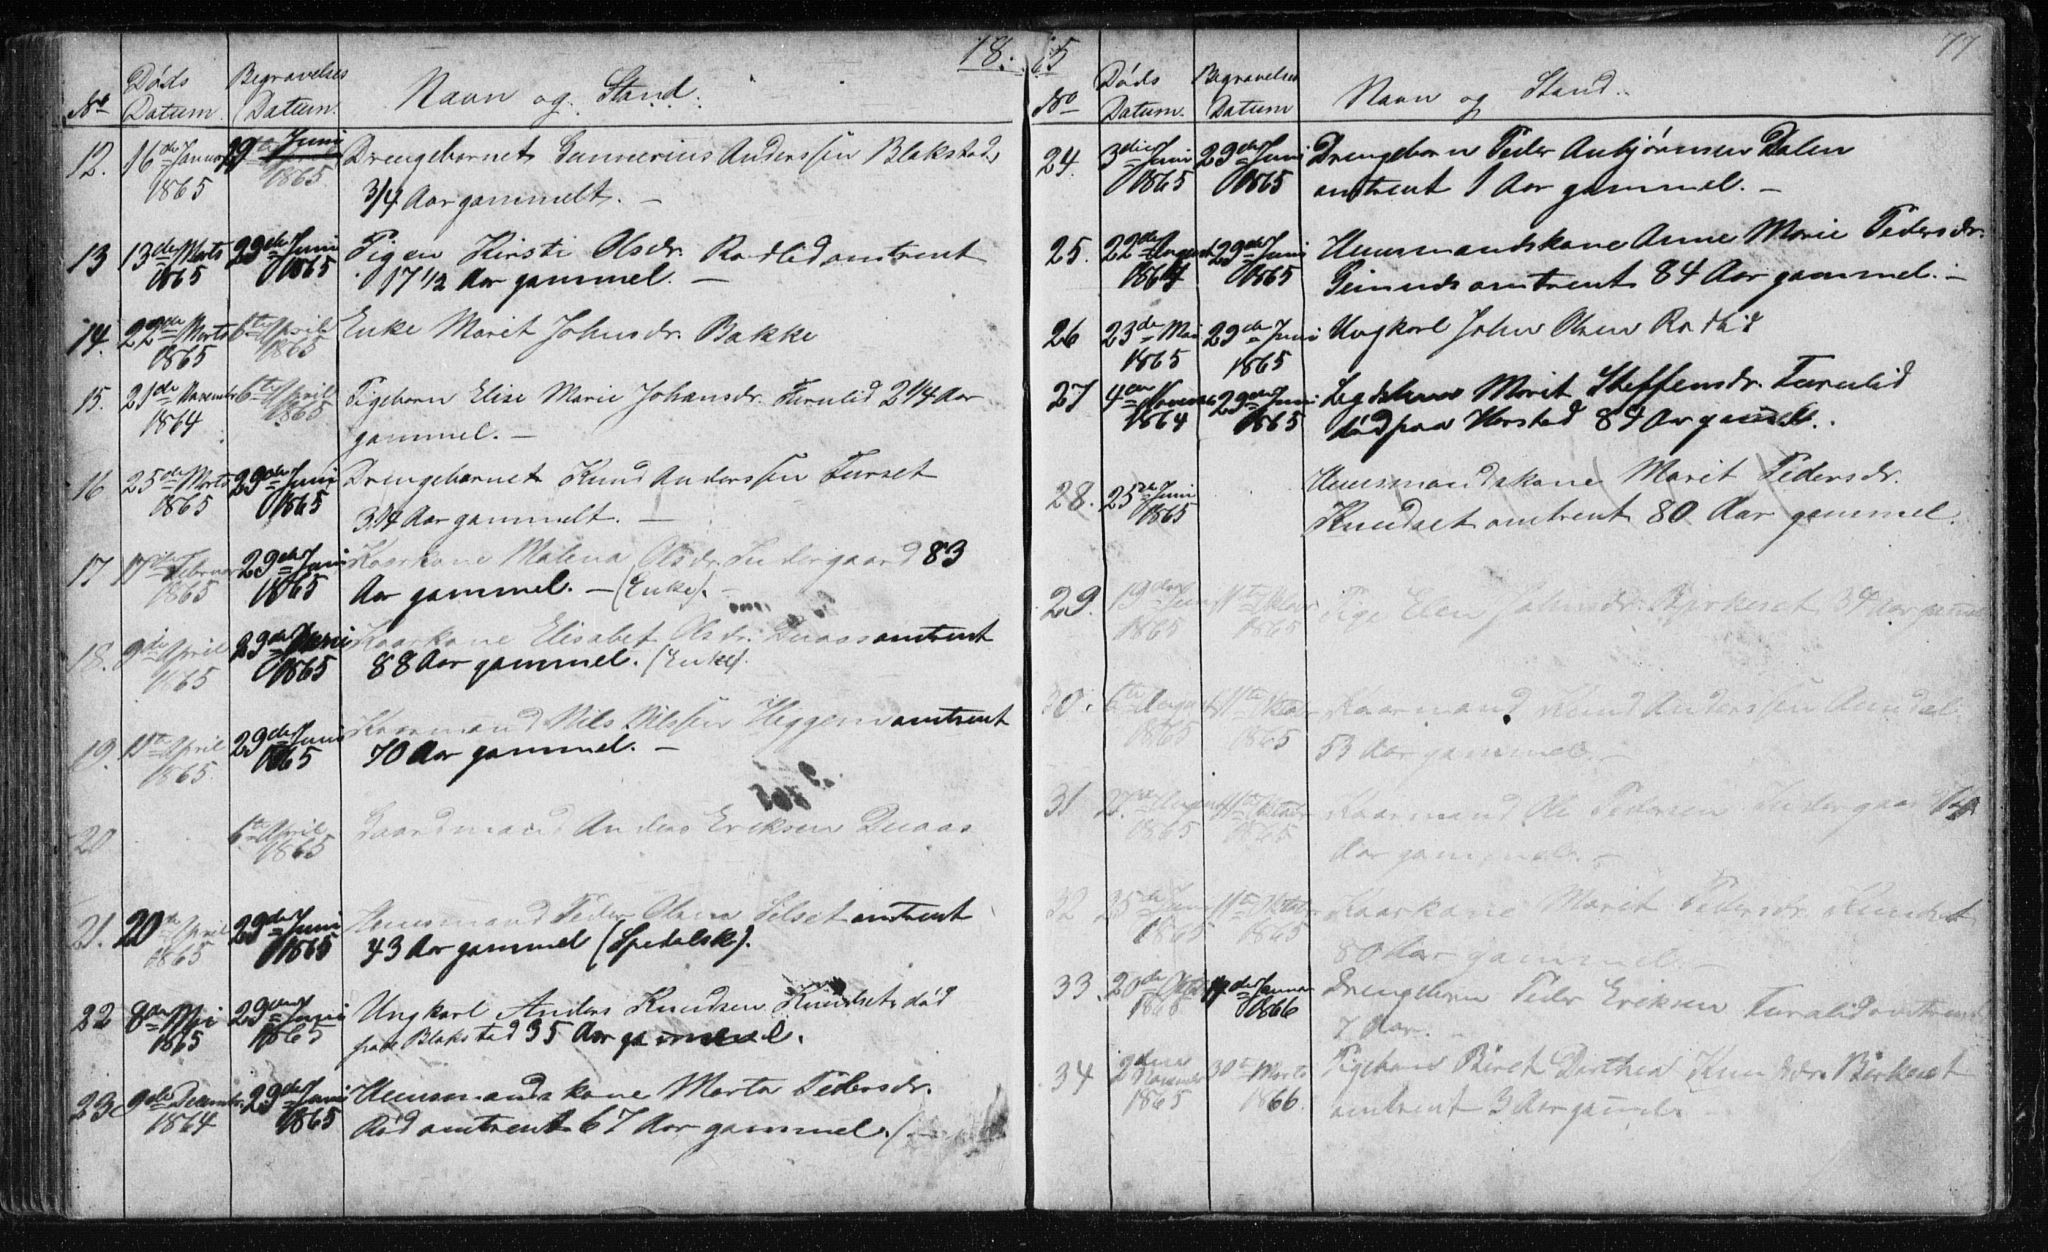 18.
Døds Begravelses
No Datum. Datum. Navn og Stand.
12. 16de Januar 29de Juni Drengebarnet Gunnerius Anderssen Blakstad
1865 1865 3/4 Aar gammelt. —
13 13de Marts 29de Juni Pigen Kirsti Olsdr. Rødlid omtrent
1865 1865 17 1/2 Aar gammel. —
14. 22de Marts 6te April Enke Marit Johnsdr. Bakke
1865 1865
15. 21de 6te April Pigebarn Elise Marie Johansdr. Furulid 2 1/4 Aar
1864 1865 gammel. —
16 25de Marts 29de Juni Drengebarnet Knud Anderssen Furset
1865 1865 3/4 Aar gammelt. —
17 17de Februar 29de Juni Kaarkone Malena Olsdr. Indergaard 83
1865 1865 Aar gammel. — (Enke). —
18. 9de April 29de Juni Kaarkone Elisabet Olsdr. Duaas omtrent
1865 1865 88 Aar gammel. (Enke).
19. 11te April 29de Juni Kaarmand Nils Nilssen Higgem omtrent
1865 1865 70 Aar gammel. —
20 6te April Gaardmand Anders Eriksen Duaas
1865
21. 20de April 29de Juni Huusmand Peder Olsen Selset omtrent
1865 1865 43 Aar gammel (Spedalsk).
22 8de Mai 29de Juni Ungkarl Anders Knudsen Knudset, død
1865 1865 paa Blakstad 35 Aar gammel.
23. 9de December 29de Juni Huusmandskone Marta Pedersdr.
1864 1865 Rød omtrent 67 Aar gammel. —
65 77
Døds Begravelses
No Datum. Datum Navn og Stand.
24. 3die Juni 29de Juni Drengebarn Peder Anbjørnsen Dalen
1865 1865 omtrent 1 Aar gammel. —
25. 22de August 29de Juni Huusmandskone Anne Marie Pedersdr.
1864 1865 omtrent 84 Aar gammel. —
26 23de Mai 29de Juni Ungkarl John Olsen Rødlid
1865 1865
27 4de 29de Juni Marit Steffensdr. Furulid
1864 1865 død paa Harstad 84 Aar gammel.
28. 25de Juni Huusmandskone Marit Pedersdr.
1865 Knudset omtrent 80 Aar gammel.
29. 19de Juni 11te Oktober Pige Elen Johnsdr. Birkeset 34 Aar gammel
1865 1865
30. 6te August 11te Oktober Kaarmand Knud Anderssen
1865 1865 53 Aar gammel. —
31 August 11te Oktober Kaarmand Ole Pedersen Indergaard
1865 1865 Aar gammel. —
32 25de Juni 11te Oktober Kaarkone Marit Pedersdr. Knudset
1865 1865 80 Aar gammel. —
33. 20de Januar Drengebarn Peder Eriksen Furulid omtrent
1865 1866 7 Aar. —
34 2den November 30te Marts Pigebarn Beret Dorthea Knudsdr. Birkeset
1865 1866. omtrent 3 Aar gammel. —